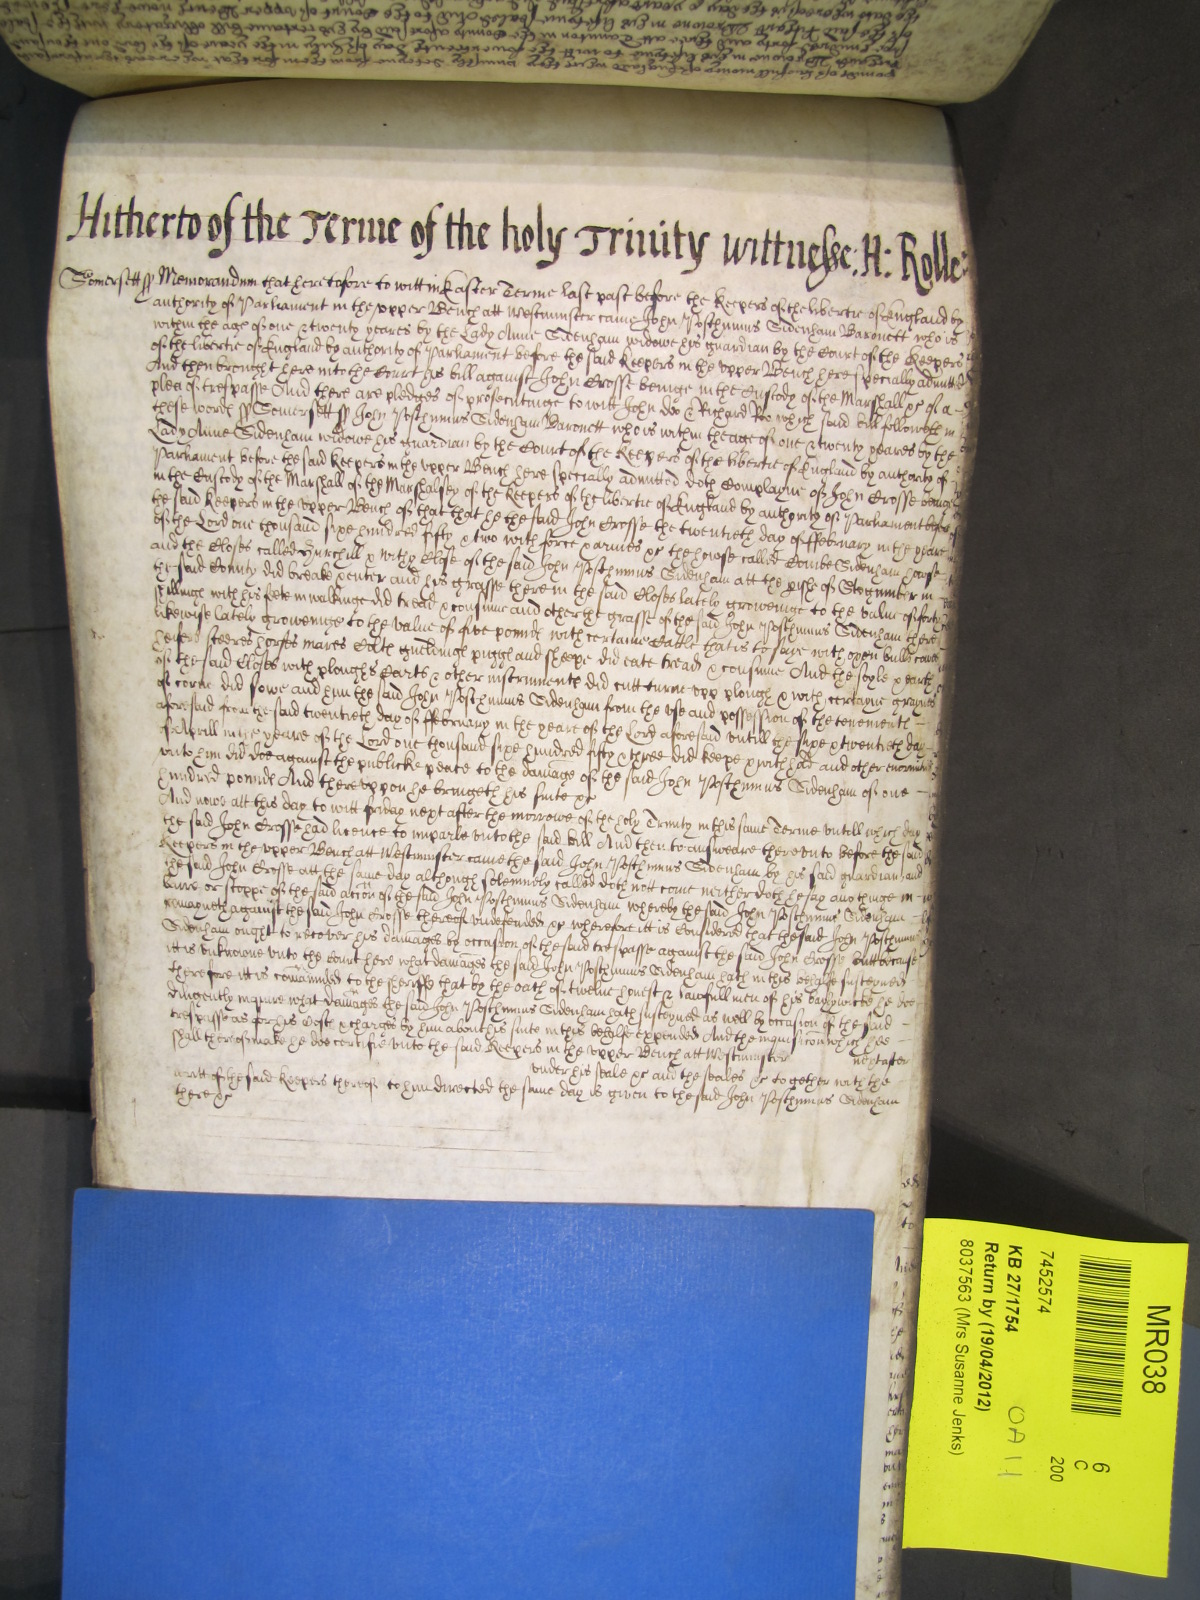 Hitherto of the Terme of the holy Trinity wittnesse: H: Rolle:
Somersett ss Memorandum that heretofore to witt in Easter Terme last past before the Keepers of the libertie of England by
authority of Parliament in the upper Bench att Westminster came John Posthumus Sidenham Baronett who is
within the age of one & twenty yeares by the Lady Anne Sidenham widowe his guardian by the Court of the Keepers
of the libertie of England by authority of Parliament before the said Keepers in the upper Bench here specially admitted
And then brought here into the Court his bill against John Crosse beinge in the Custody of the Marshall &c of a
plea of trespasse And there are pledges of prosecutinge to witt John Doo & Richard Roo which said bill followeth in
these words ss Somersett ss John Posthumus Sidenham Baronett who is within the age of one & twenty yeares by the
Lady Anne Sidenham widowe his guardian by the Court of the Keepers of the libertie of England by authority of
Parliament before the said Keepers in the upper Bench here specially admitted doth Complayne of John Crosse beinge
in the Custody of the Marshall of the Marshalsey of the Keepers of the libertie of England by authority of Parliament before
the said Keepers in the upper Bench of that that he the said John Crosse the twentieth day of ffebruary in the yeare
of the Lord one thousand sixe hundred fifty & two with force & armes &c the howse called Combe Sidenham house
and the Closes called Hurchill & withy Close of the said John Posthumus Sidenham att the pish of Stogumber in
the said County did breake & enter and his grasse there in the said Closes lately groweinge to the value of forty
shillings with his feete in walkinge did tread & consume and other the grasse of the said John Posthumus Sidenham there
likewise lately groweinge to the value of five pounds with certaine Cattle that is to saye with oxen bulls cowes
heifers steeres horses mares Colts gueldings piggs and sheepe did eate tread & consume And the soyle & earth
of the said Closes with ploughs Carts & other instruments did cutt turne upp plough & with certayne graynes
of corne did sowe and him the said John Posthumus Sidenham from the use and possession of the tenements
aforesaid from the said twentieth day of ffebruary in the yeare of the Lord aforesaid untill the sixe & twentieth day
of Aprill in the yeare of the Lord one thousand sixe hundred fifty & three did keepe & withhold and other enormities
unto him did doe against the publicke peace to the damage of the said John Posthumus Sidenham of one
hundred pounds And thereuppon he bringeth his suite &c
And nowe att this day to witt friday next after the morrowe of the holy Trinity in this same Terme untill which day
the said John Crosse had licence to imparle unto the said bill And then to answeare thereunto before the said
Keepers in the upper Bench att Westminster came the said John Posthumus Sidenham by his said guardian And
the said John Crosse att the same day although solemnely called doth nott come neither doth he say any thinge in
barre or stoppe of the said action of the said John Posthumus Sidenham whereby the said John Posthumus Sidenham
remayneth against the said John Crosse thereof undefended &c wherefore itt is Considered that the said John Posthumus
Sidenham ought to recover his damages by occasion of the said trespasse against the said John Crosse Butt because
itt is unknowne unto the Court here what damages the said John Posthumus Sidenham hath in this behalfe susteyned
therefore itt is comannded to the sheriffe that by the oath of twelve honest & lawfull men of his baylywicke he doe
diligently inquire what damages the said John Posthumus Sidenham hath susteyned as well by occasion of the said
trespasse as for his Costs & charges by him about his suite in this behalfe expended And the inquisicon which hee
shall thereof make he doe certifie unto the said Keepers in the upper Bench att Westminster next after
under his seale &c and the seales &c together with the
writt of the said Keepers thereof to him directed the same day is given to the said John Posthumus Sidenham
there &c
MR038
6
C
200
7452574
KB 27/1754
Return by (19/04/2012)
8037563 (Mrs Susanne Jenks)